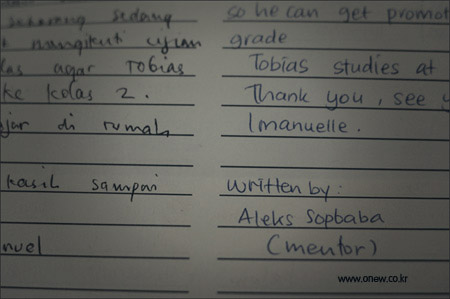 sekarang sedang
mengikuti ujian
agar TObias
ke kelas 2.
di rumah
kasih sampai
nuel
so he can get promot
grade
Tobias studies at
Thank you, see y
Imanuelle.
written by:
Aleks Sopbaba
(mentor)
www.onew.co.kr